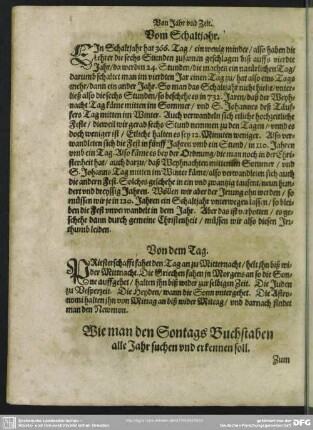 Von Jahr vnd Zeit.
Vom Schaltjahr.
EIn Schaltjahr hat 366. Tag / ein wenig minder / also haben die
Lehrer die sechs Stunden zusamen geschlagen biß auffs vierdte
Jahr / da werden 24. Stunden / die machen ein natürlichen Tag /
darumb schaltet man im vierdten Jar einen Tag zu / hat also eins Tags
mehr / dann ein ander Jahr. So man das Schaltjahr nicht hielte / vnter-
ließ also die sechs Stunden / so beschehe in 732. Jaren / daß der Weyh-
nacht Tag käme mitten im Sommer / vnd S. Johannes deß Täuf-
fers Tag mitten im Winter. Auch verwandeln sich etliche hochzeitliche
Feste / dieweil wir gerad sechs Stund nemmen zu den Tagen / vnnd es
doch weniger ist / Etliche halten es sey 12. Minuten weniger. Also ver-
wandelten sich die Fest in fünff Jahren vmb ein Stund / in 120. Jahren
vmb ein Tag. Also käme es bey der Ordnung / die man noch in der Chri-
stenheit hat / auch darzu / daß Weyhnachten mitten im Sommer / vnd
S. Johanns Tag mitten im Winter käme / also verwandelten sich auch
die andern Fest. Solches geschehe in ein vnd zwantzig tausent / neun hun-
dert vnd dreyssig Jahren. Wöllen wir aber der Irrung ohn werden / so
müssen wir je in 120. Jahren ein Schaltjahr vnterwegen lassen / so blei-
ben die Fest vnverwandelt in dem Jahr. Aber das ist verbotten / es ge-
schehe dann durch gemeine Christenheit / müssen wir also diesen Irr-
thumb leiden.
Von dem Tag.
PRiesterschafft fahet den Tag an zu Mitternacht / helt ihn biß wi-
der Mitnacht. Die Griechen fahen jn Morgens an so die Son-
ne auffgehet / halten jhn biß wider zur selbigen Zeit. Die Juden
zu Vesperzeit. Die Heyden / wann die Sonn vntergehet. Die Astro-
nomi halten jhn von Mittag an biß wider Mittag / vnd darnach findet
man den Newmon.
Wie man den Sontags Buchstaben
alle Jahr suchen vnd erkennen soll.
Zum